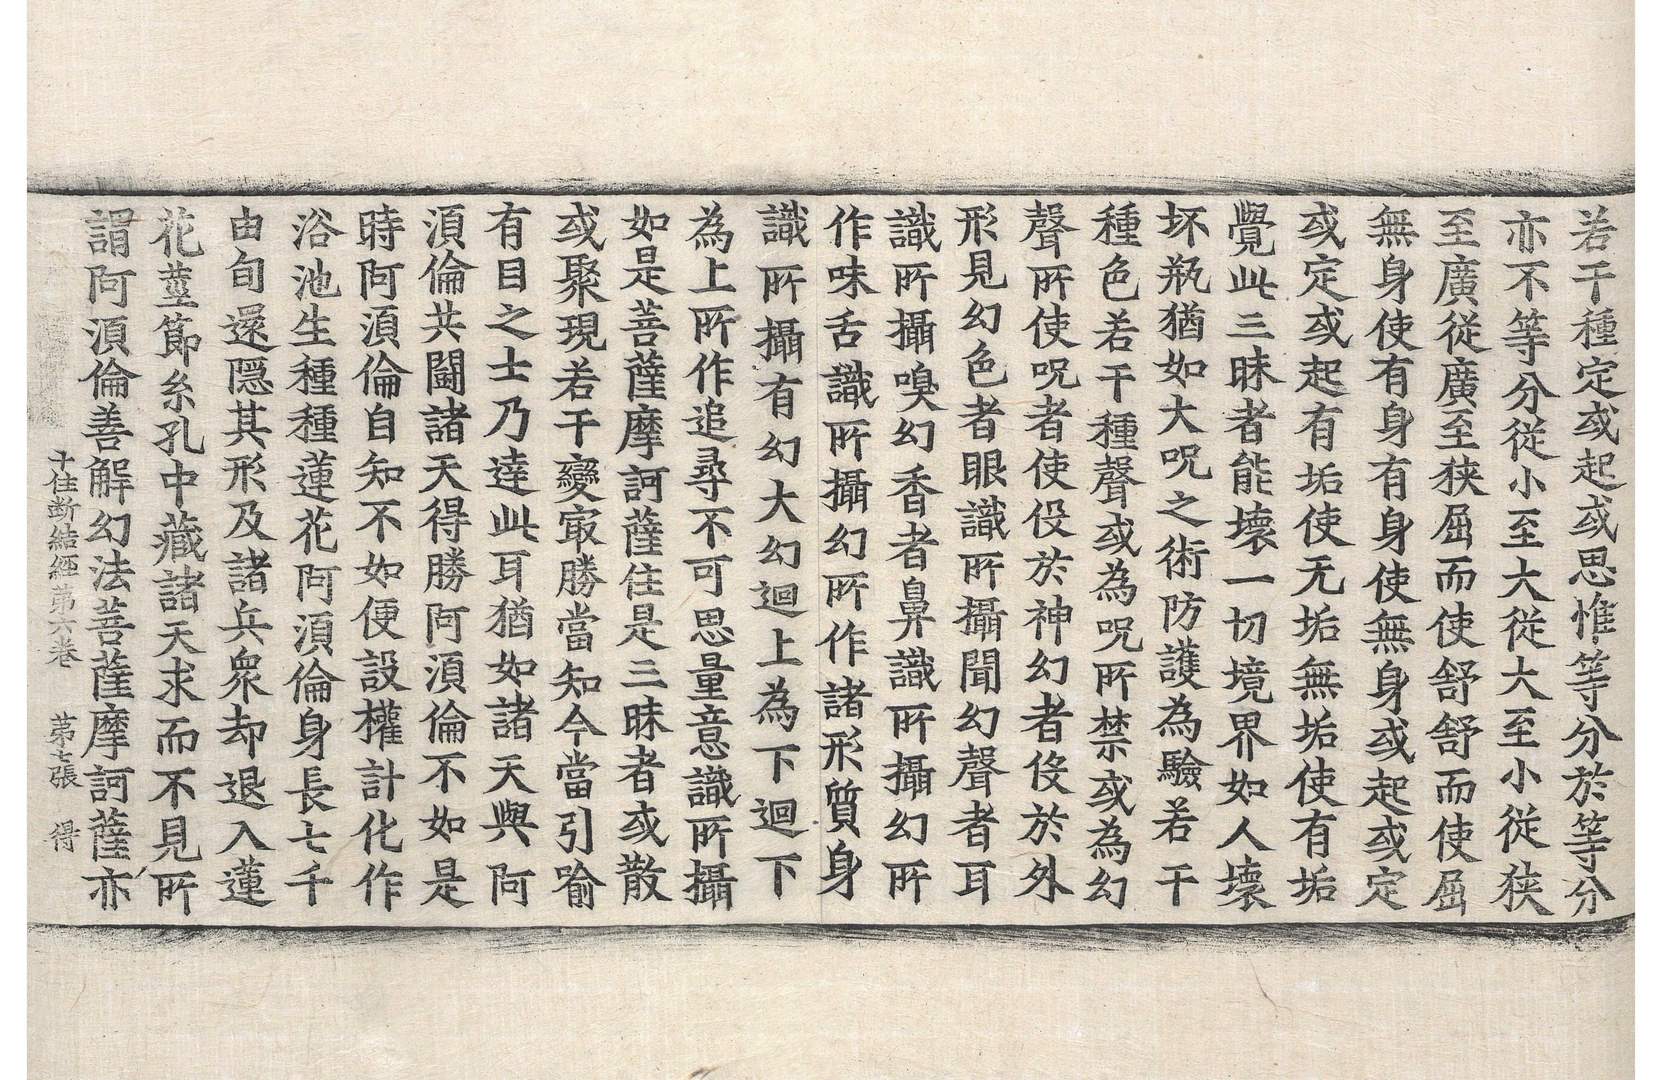 若干種定或起或思惟等分於等分
亦不等分從小至大從大至小從狹
至廣從廣至狹屈而使舒舒而使屈
無身使有身有身使無身或起或定
或定或起有垢使无垢無垢使有垢
覺此三昧者能壞一切境界如人壞
坏瓶猶如大呪之術防護為驗若干
種色若干種聲或為呪所禁或為幻
聲所使呪者使伇於神幻者伇於外
形見幻色者眼識所攝聞幻聲者耳
識所攝嗅幻香者鼻識所攝幻所
作味舌識所攝幻所作諸形質身
識所攝有幻大幻迴上為下迴下
為上所作追尋不可思量意識所攝
如是菩薩摩訶薩住是三昧者或散
或聚現若干變㝡勝當知今當引喻
有目之士乃達此耳猶如諸天與阿
湏倫共鬪諸天得勝阿湏倫不如是
時阿湏倫自知不如便設權計化作
浴池生種種蓮花阿湏倫身長七千
由旬還隱其形及諸兵衆却退入蓮
花莖節糸孔中藏諸天求而不見所
謂阿湏倫善解幻法菩薩摩訶薩亦
十住断結經第六卷　第七張　得